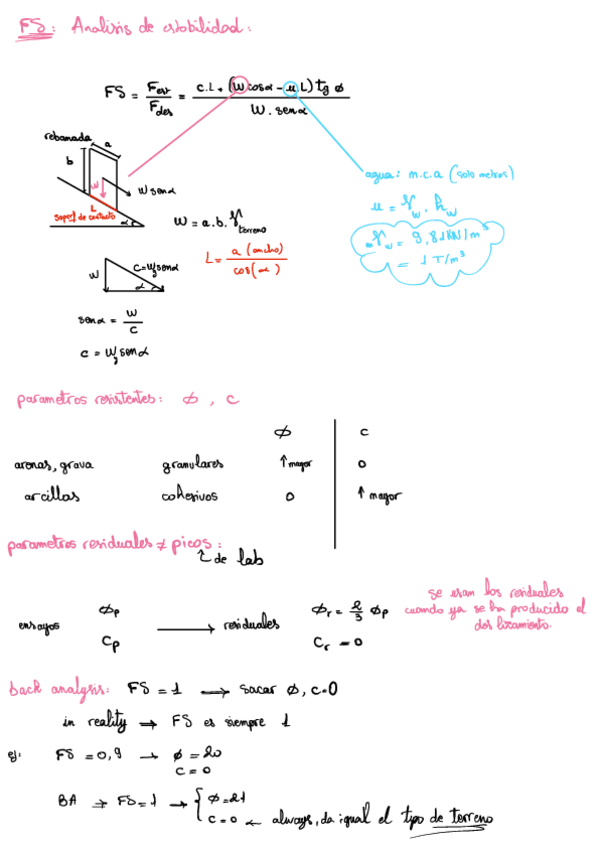 FS: Analisis de estabilidad:
FS = Fest/Fdes = c.L + (W cosα - u L) tg φ / W. senα
rebanada
a
b
W
W senα
L
superf de contacto
α
agua: m.c.a (solo metros)
u = γw . hw
γw = 9,81 kN/m³
= 1 T/m³
W = a.b.γterreno
L = a (ancho) / cos(α)
W
c = W/senα
α
senα = W/c
c = W/senα
parametros resistentes: φ , c
φ c
arenas, grava granulares ↑ mayor 0
arcillas cohesivos 0 ↑ mayor
parametros residuales ≠ picos:
↳ de lab
ensayos φp Cp → residuales φr = 2/3 φp Cr = 0
se usan los residuales
cuando ya se ha producido el
deslizamiento.
back analysis: FS = 1 → sacar φ, c=0
in reality → FS es siempre 1
ej: FS = 0,9 → φ = 20
c = 0
BA → FS = 1 → { φ = 21
c = 0 ← always, da igual el tipo de terreno